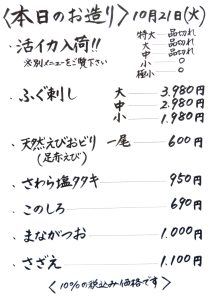 〈本日のお造り〉10月21日(火)
・活イカ入荷!!
※別メニューをご覧下さい
特大 — 品切れ
大 — 品切れ
中 — 品切れ
小 — ○
極小 — ○
・ふぐ刺し
大 — 3.980円
中 — 2.980円
小 — 1.980円
・天然えびおどり 一尾 — 600円
(足赤えび)
・さわら塩タタキ — 950円
・このしろ — 690円
・まながつお — 1.000円
・さざえ — 1.100円
〈10%の税込み価格です〉